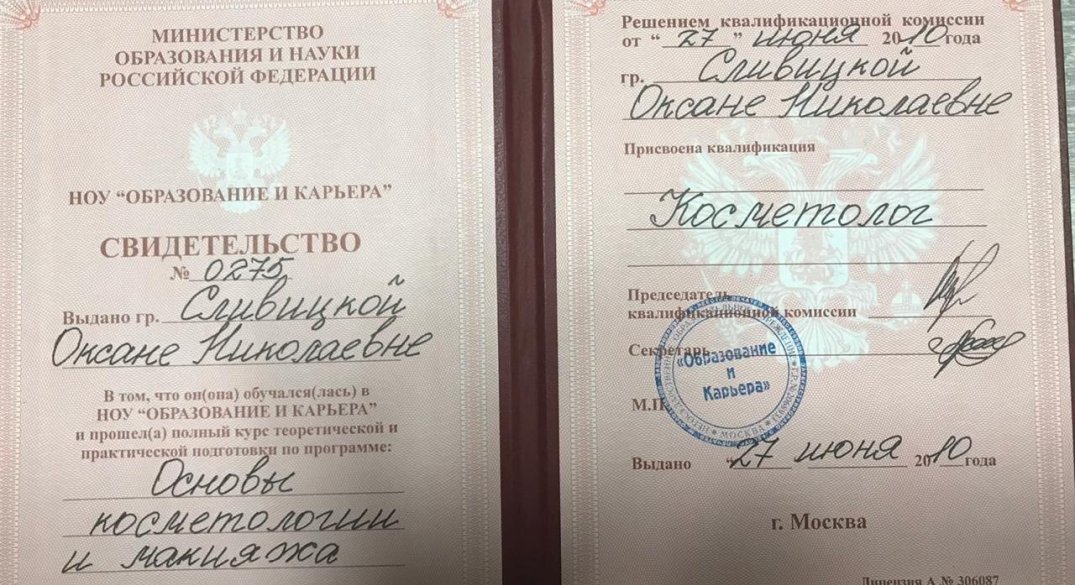 МИНИСТЕРСТВО
ОБРАЗОВАНИЯ И НАУКИ
РОССИЙСКОЙ ФЕДЕРАЦИИ
НОУ “ОБРАЗОВАНИЕ И КАРЬЕРА”
СВИДЕТЕЛЬСТВО
№ 0275
Выдано гр. Сливицкой
Оксане Николаевне
В том, что он(она) обучался(лась) в
НОУ “ОБРАЗОВАНИЕ И КАРЬЕРА”
и прошел(а) полный курс теоретической и
практической подготовки по программе:
Основы
косметологии
и макияжа
Решением квалификационной комиссии
от “ 27 ” июня 2010 года
гр. Сливицкой
Оксане Николаевне
Присвоена квалификация
Косметолог
Председатель
квалификационной комиссии
Секретарь
«Образование
и
Карьера»
МОСКВА
М.П.
Выдано “27 июня 2010 года
г. Москва
Лицензия А № 306087